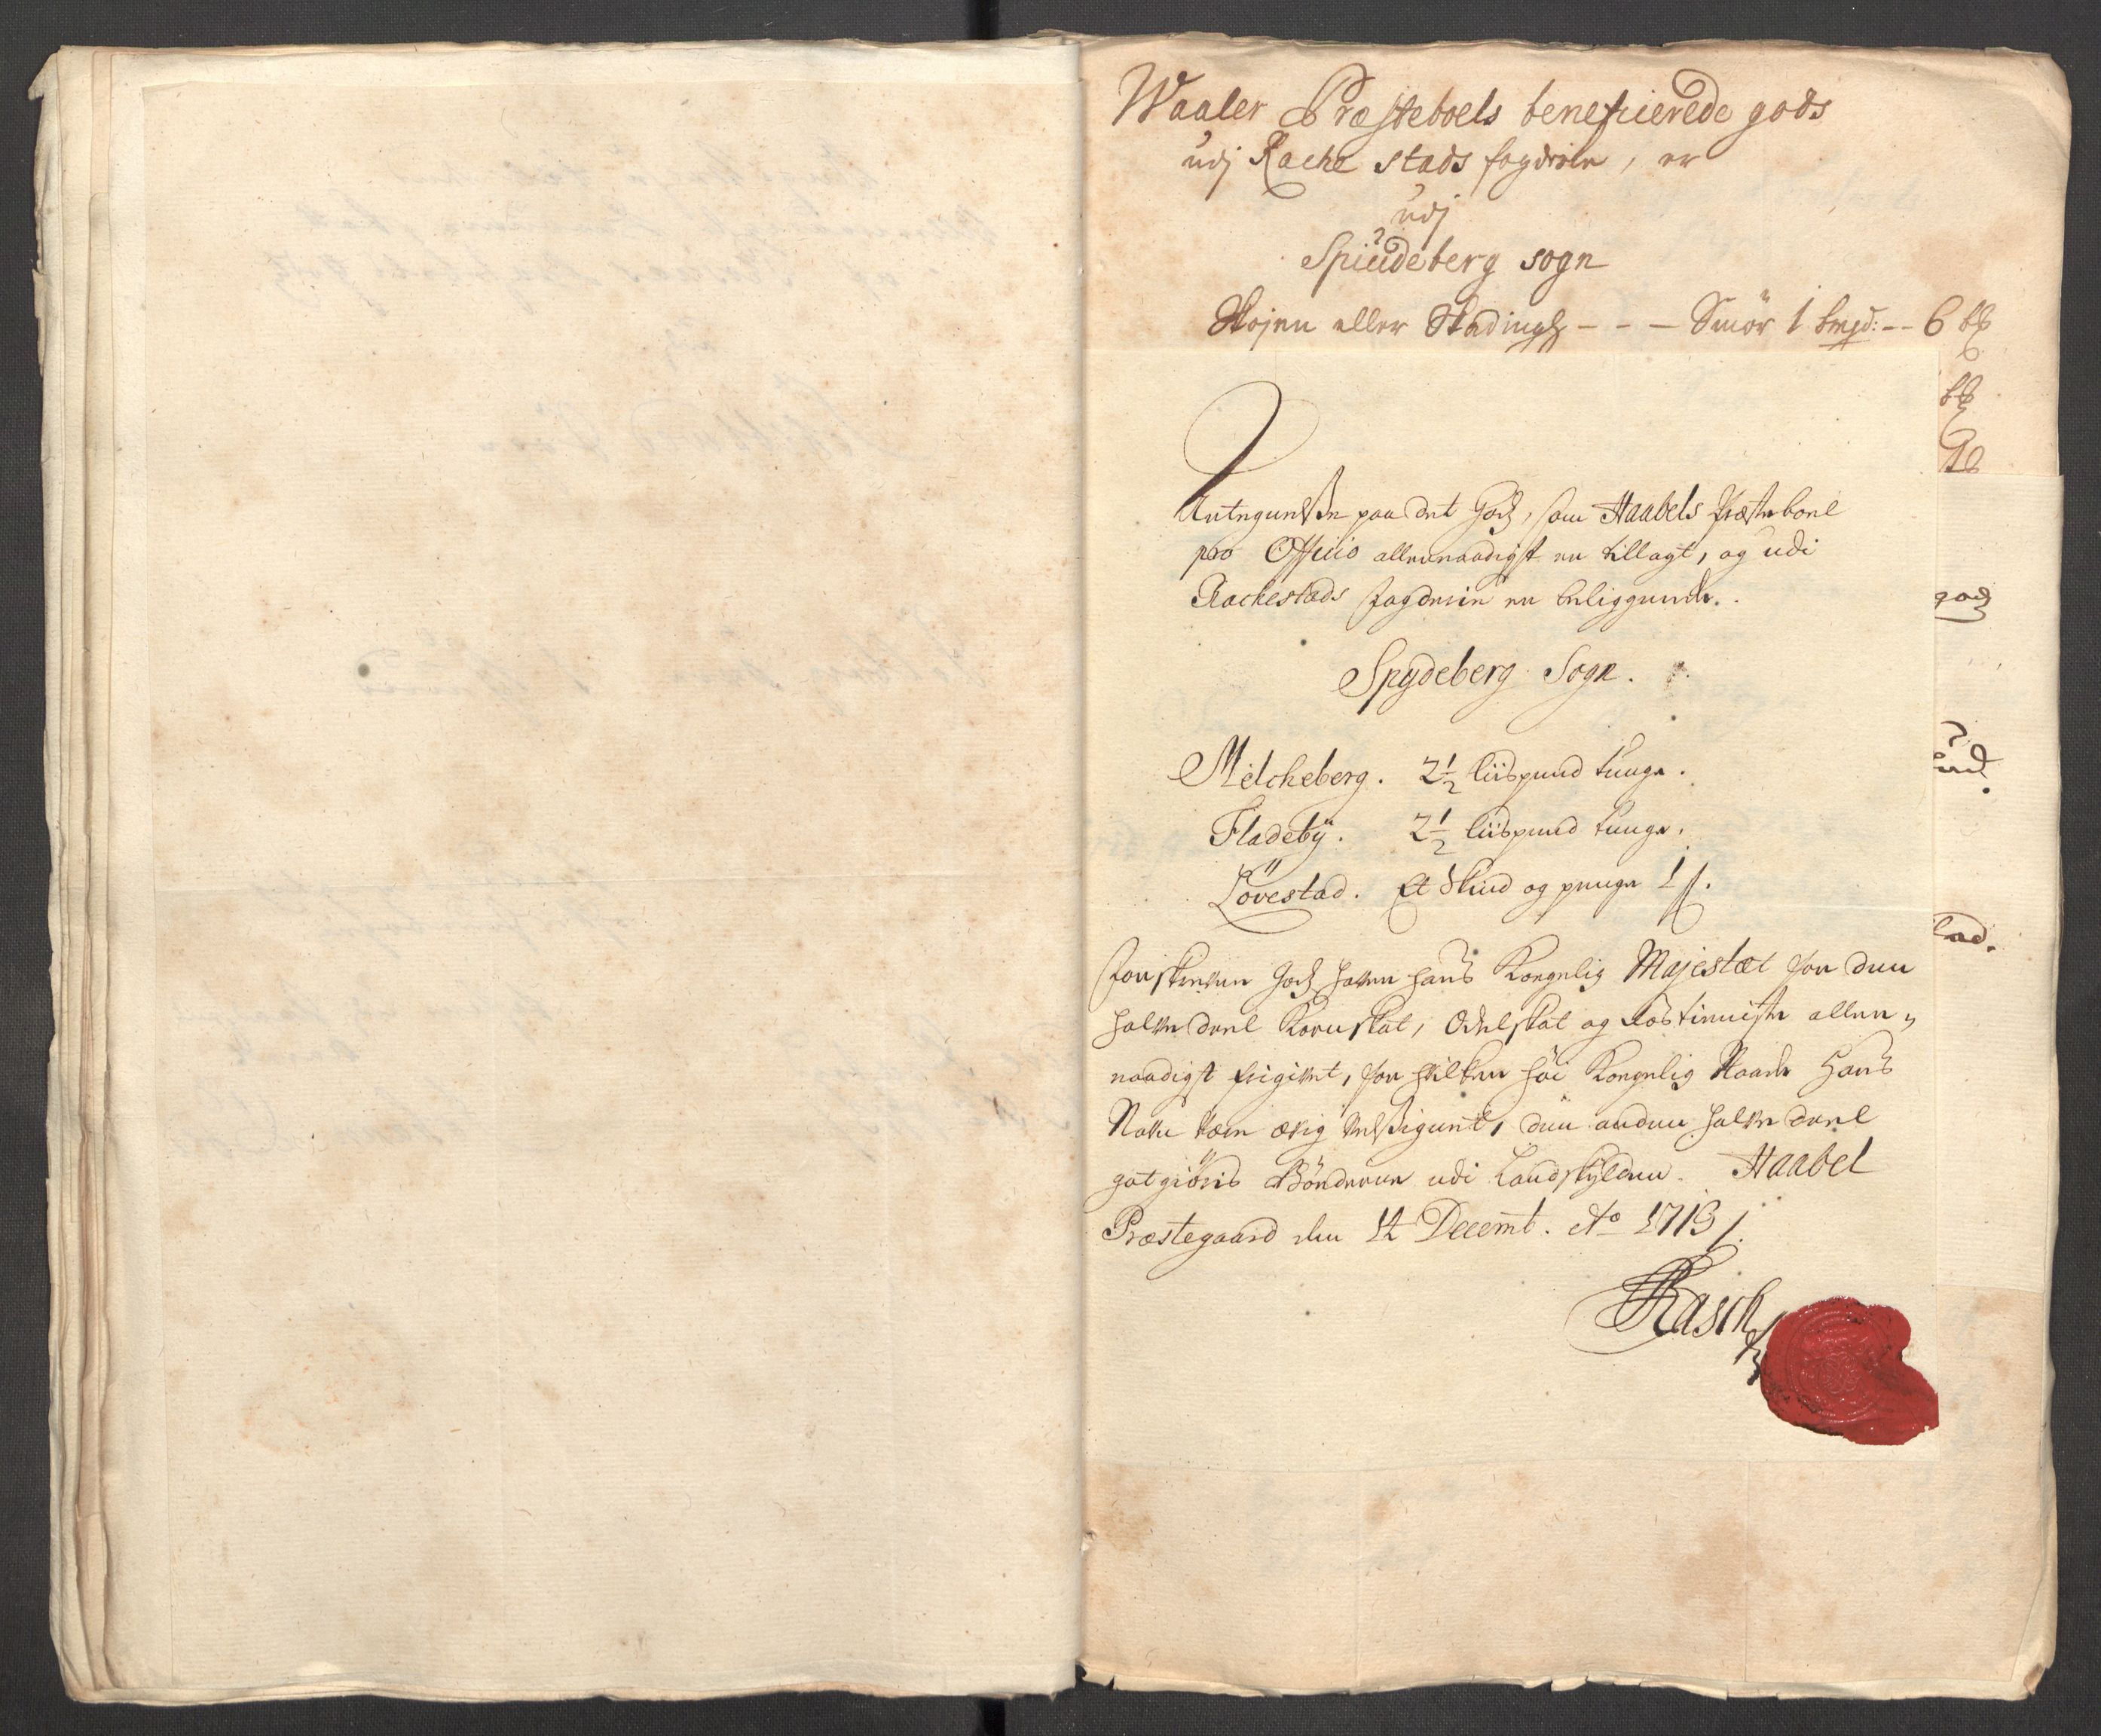 Waaler Præsteboels beneficierede gods
udj Rache stads fogderie, er
udj
Spiüdeberg sogn
Skojen eller Stadingh - - - Smör 1 bmpd: -- 6 bß
bß
gods
Antegnelse paa det Gods, som Haabels Præsteboel
pro Officio allernaadigst er tillagt, og udi
Rachestads fogderie er beliggende.
Spydeberg Sogn.
Melcheberg. 2½ liispund tunge.
Fladebÿ. 2½ liispund tunge.
Lövestad. Et Skind og penge 1 ß.
Forskrevne Gods haver hans Kongelig Majestæt for den
halve deel Kornskat, Odelskat og Rostieniste aller„
naadigst frigivet, for hvilken höi Kongelig Naade Hans
Navn være ævig velsignet, den anden halve deel
gotgiöris Bönderne udi Landskÿlden. Haabel
Præstegaard den 12 Decemb. Ao 1713 /.
Rasch